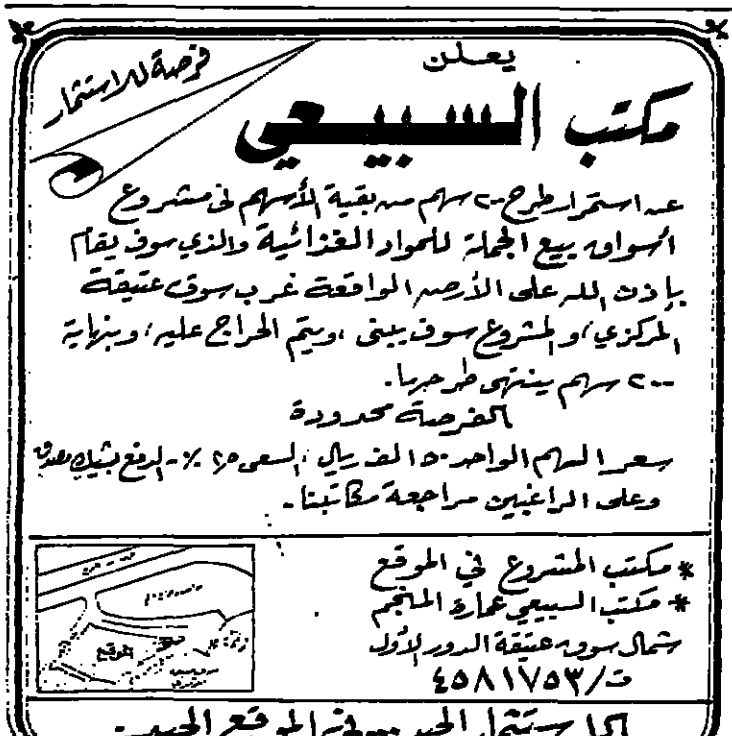 فرصة للاستثمار
يعلن
مكتب السبيعي
عن استمرار طرح ٢٠٠ سهم من بقية الأسهم في مشروع
أسواق بيع الجملة للمواد الغذائية والذي سوف يقام
بإذن الله على الأرض الواقعة غرب سوق عتيقة
المركزي، والمشروع سوف يبنى، ويتم الحراج عليه، وبنهاية
٢٠٠ سهم ينتهي طرحها.
الفرصة محدودة
سعر السهم الواحد ٥٠ الف ريال، السعي ٢٫٥ ٪ - الدفع بشيك مصدق
وعلى الراغبين مراجعة مكاتبنا.
* مكتب المشروع في الموقع
* مكتب السبيعي عمارة المنجم
شمال سوق عتيقة الدور الأول
ت/٤٥٨١٧٥٣
الموقع
الاستثمار الجيد في الموقع الجيد.